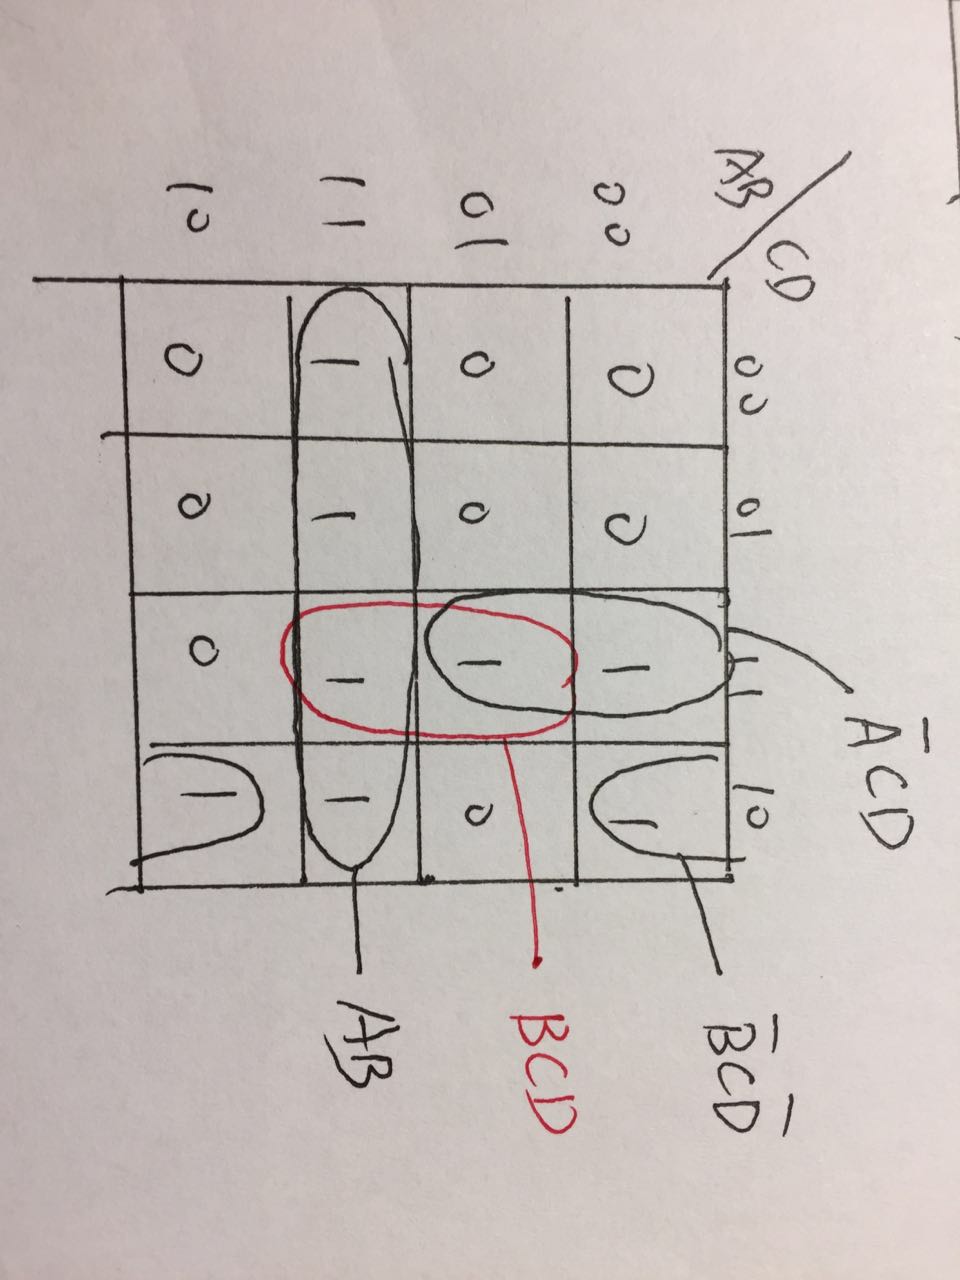 AB / CD
00 01 11 10
00 0 0 1 1
01 0 0 1 0
11 1 1 1 1
10 0 0 0 1
A̅CD
B̅CD̅
BCD
AB